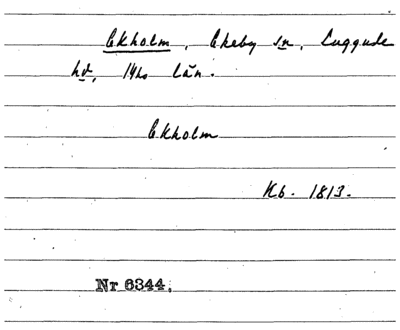 Ekholm, Ekeby sn, Luggude
hd, Mhs län.
Ekholm
Kb. 1813.
Nr 6344.